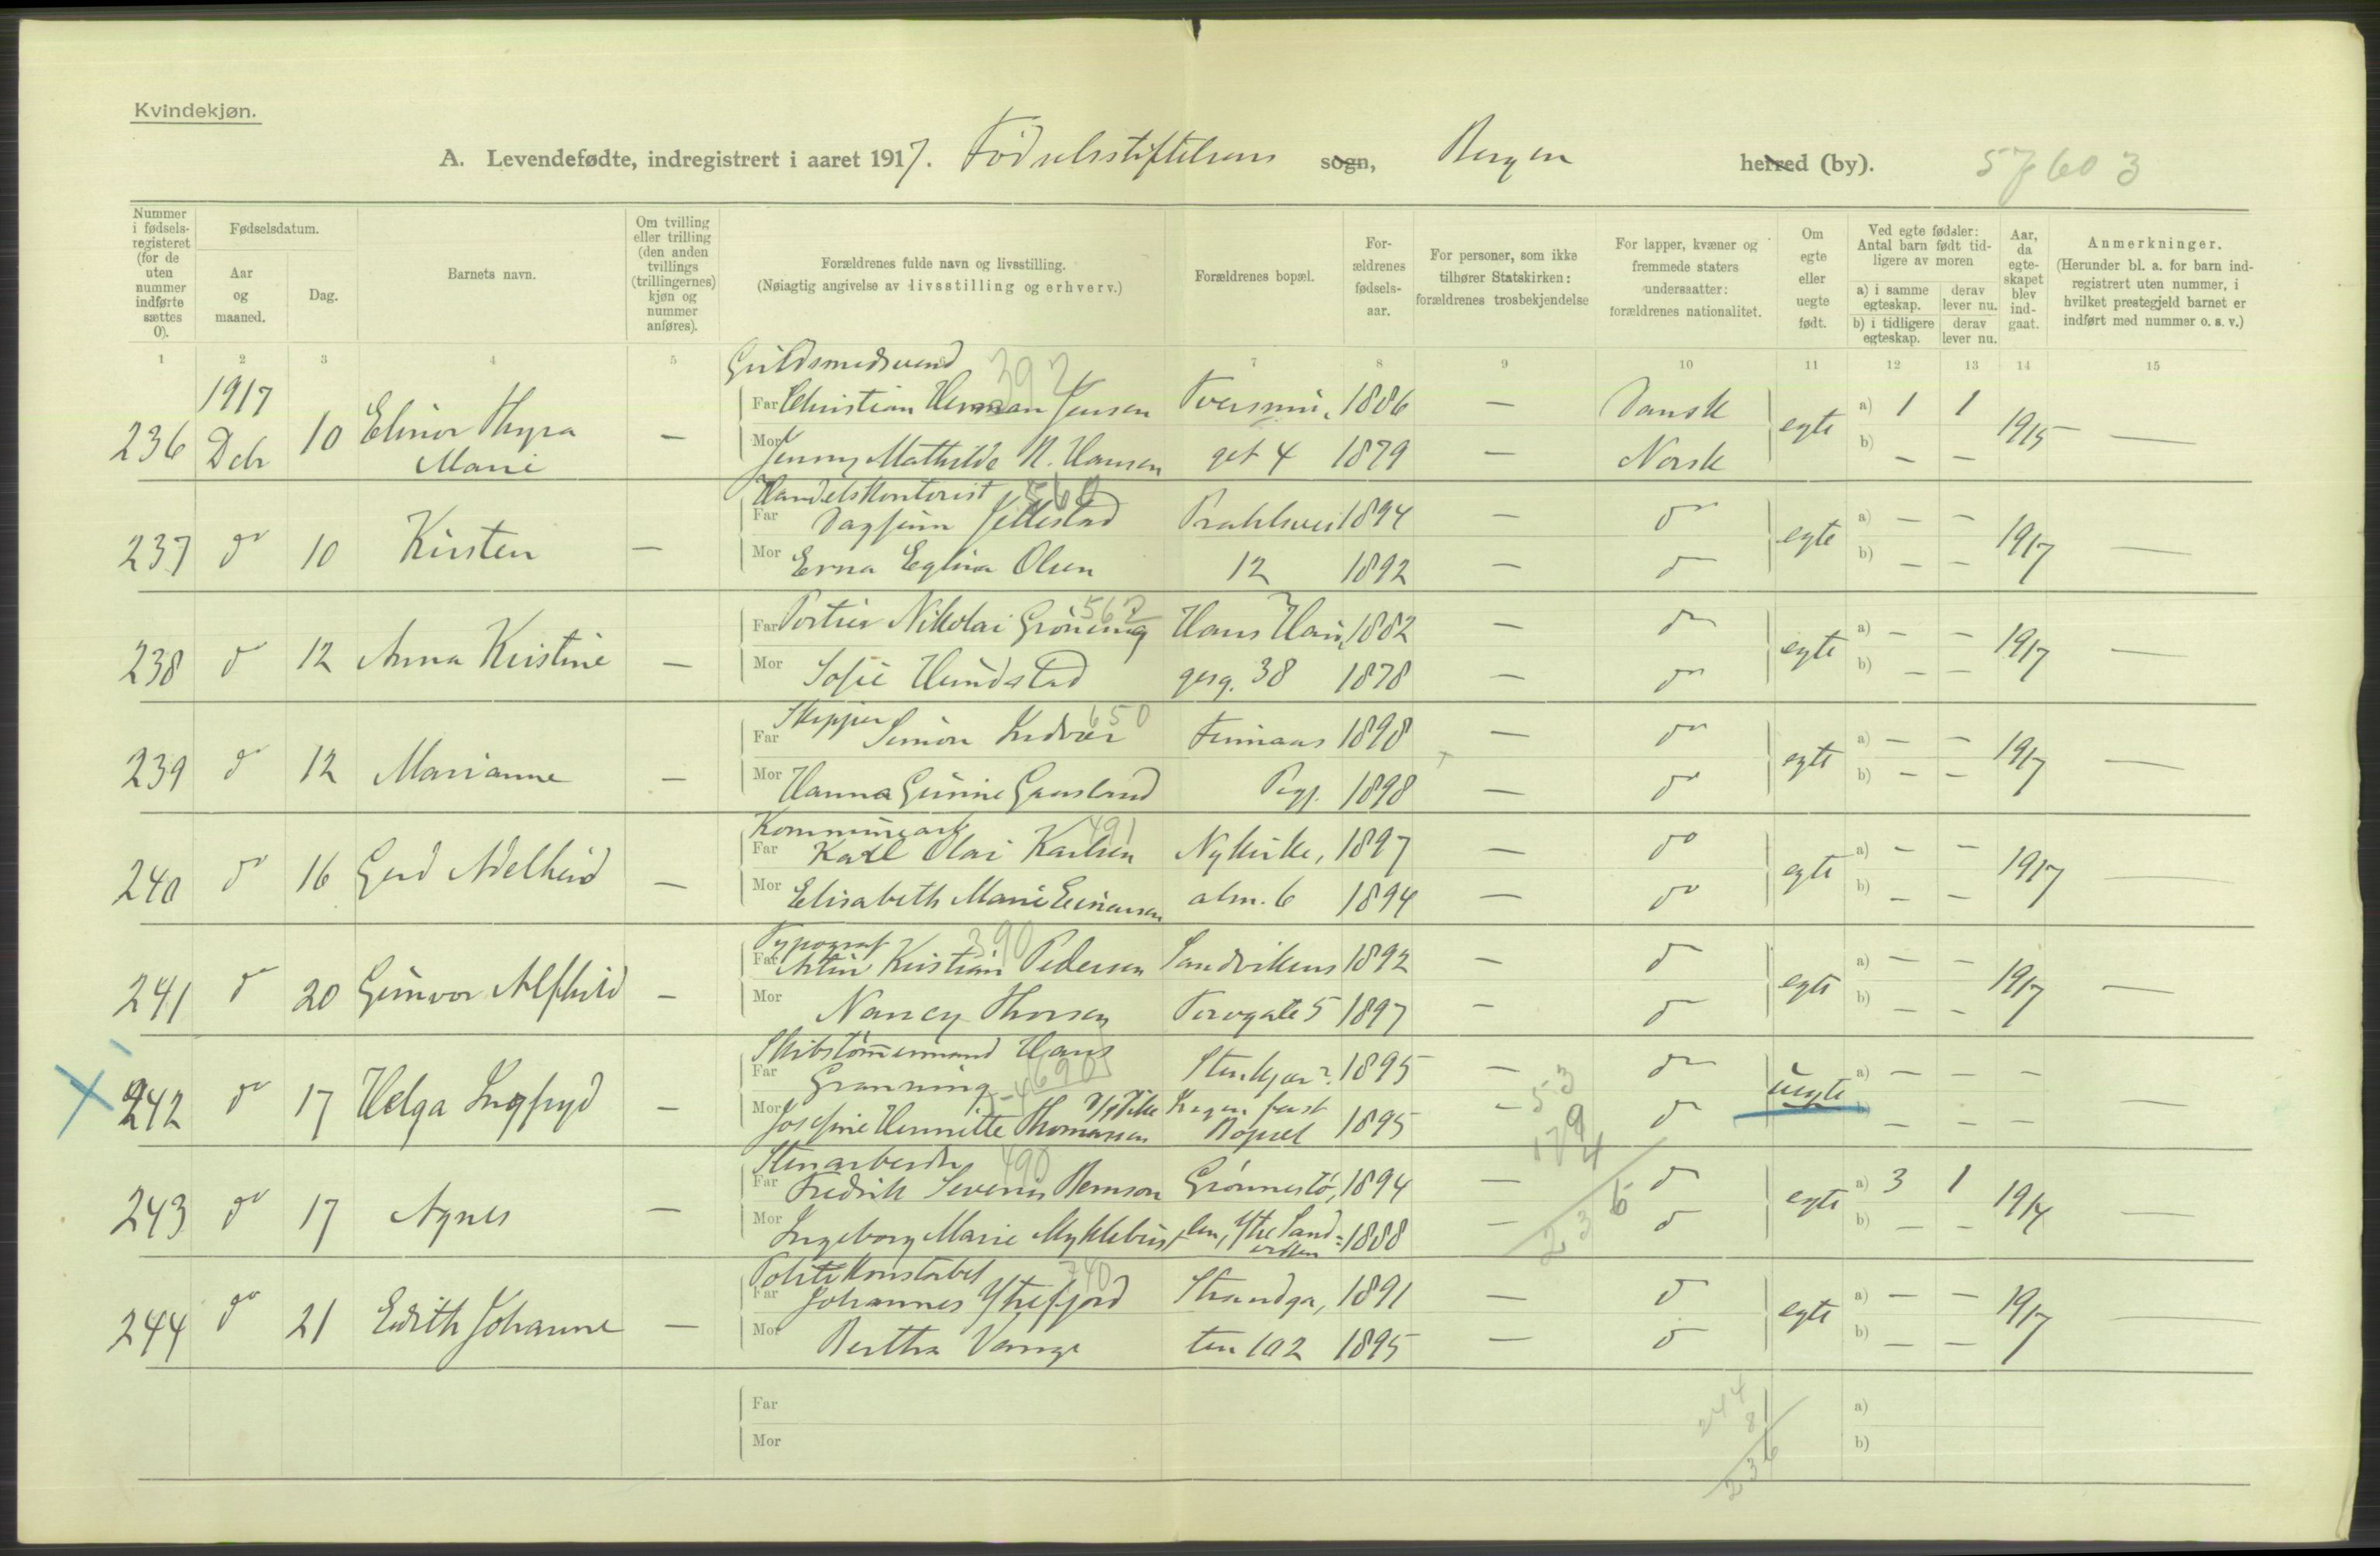 Kvindekjøn.
A. Levendefødte, indregistrert i aaret 1917. Fødselsstiftelsens sogn, Bergen herred (by). 57603
Nummer i fødselsregisteret (for de uten nummer indførte sættes 0).
Fødselsdatum.
Aar og maaned.
Dag.
Barnets navn.
Om tvilling eller trilling (den anden tvillings (trillingernes) kjøn og nummer anføres).
Forældrenes fulde navn og livsstilling.
(Nøiagtig angivelse av livsstilling og erhverv.)
Forældrenes bopæl.
Forældrenes fødselsaar.
For personer, som ikke tilhører Statskirken: forældrenes trosbekjendelse
For lapper, kvæner og fremmede staters undersaatter: forældrenes nationalitet.
Om egte eller uegte født.
Ved egte fødsler: Antal barn født tidligere av moren
a) i samme egteskap. derav lever nu.
b) i tidligere egteskap. derav lever nu.
Aar, da egteskapet blev indgaat.
Anmerkninger.
(Herunder bl. a. for barn indregistrert uten nummer, i hvilket prestegjeld barnet er indført med nummer o. s. v.)
1 2 3 4 5 7 8 9 10 11 12 13 14 15
Guldsmedsvend 392
1917 Far Christian Herman Jensen 1886 — Dansk a) 1 1
236 Debr 10 Elinor Thyra Marie — egte 1915 —
Mor Jenny Mathilde N. Hansen get 4 1879 — Norsk b) — —
Handelskontorist 560
Far Dagfinn Jillestad 1894 — do a) — —
237 do 10 Kirsten — egte 1917 —
Mor Erna Eglina Olsen 12 1892 — do b) — —
Far Portier Nikolai Gröning 562 Hans Hau, 1882 — do a) — —
238 do 12 Anna Kristine — egte 1917 —
Mor Sofie Hundstad gesg. 38 1878 — do b) — —
Skipper 650
Far Simon 1898 — do a) — —
239 do 12 Marianne — egte 1917 —
Mor Hanna Gurine Gaasland 1898 — do b) — —
Kommunearb 491
Far Karl Olai Karlsen Nykirke, 1897 — do a) — —
240 do 16 Gerd Adelheid — egte 1917 —
Mor Elisabeth Marie Einarsen alm. 6 1894 — do b) — —
Typograf 390
Far Kristian Pedersen Sandvikens 1892 — do a) — —
241 do 20 Gunvor Alfhild — egte 1917 —
Mor Nancy Thorsen Torvgate 5 1897 — do b) — —
Skibstømmermand Hans 690
Far Granning 1895 — do a) — — —
X 242 do 17 Helga Ingfryd — uegte —
Mor Josefine Henriette Thomassen Ingen fast Bopæl 1895 — do — — —
Stenarbeider 490
Far Fredrik Severin Bernson Grönnestö, 1894 — do a) 3 1
243 do 17 Agnes — egte 1914 —
Mor Ingeborg Marie Myklebust len, Ytre Sandviken 1888 — do b) — —
Politikonstabel 740
Far Johannes Ytrefjord Strandga, 1891 — do a) — —
244 do 21 Edith Johanne — egte 1917 —
Mor Bertha Vange ten 102 1895 — do b) — —
Far a)
Mor b)
244
8
236